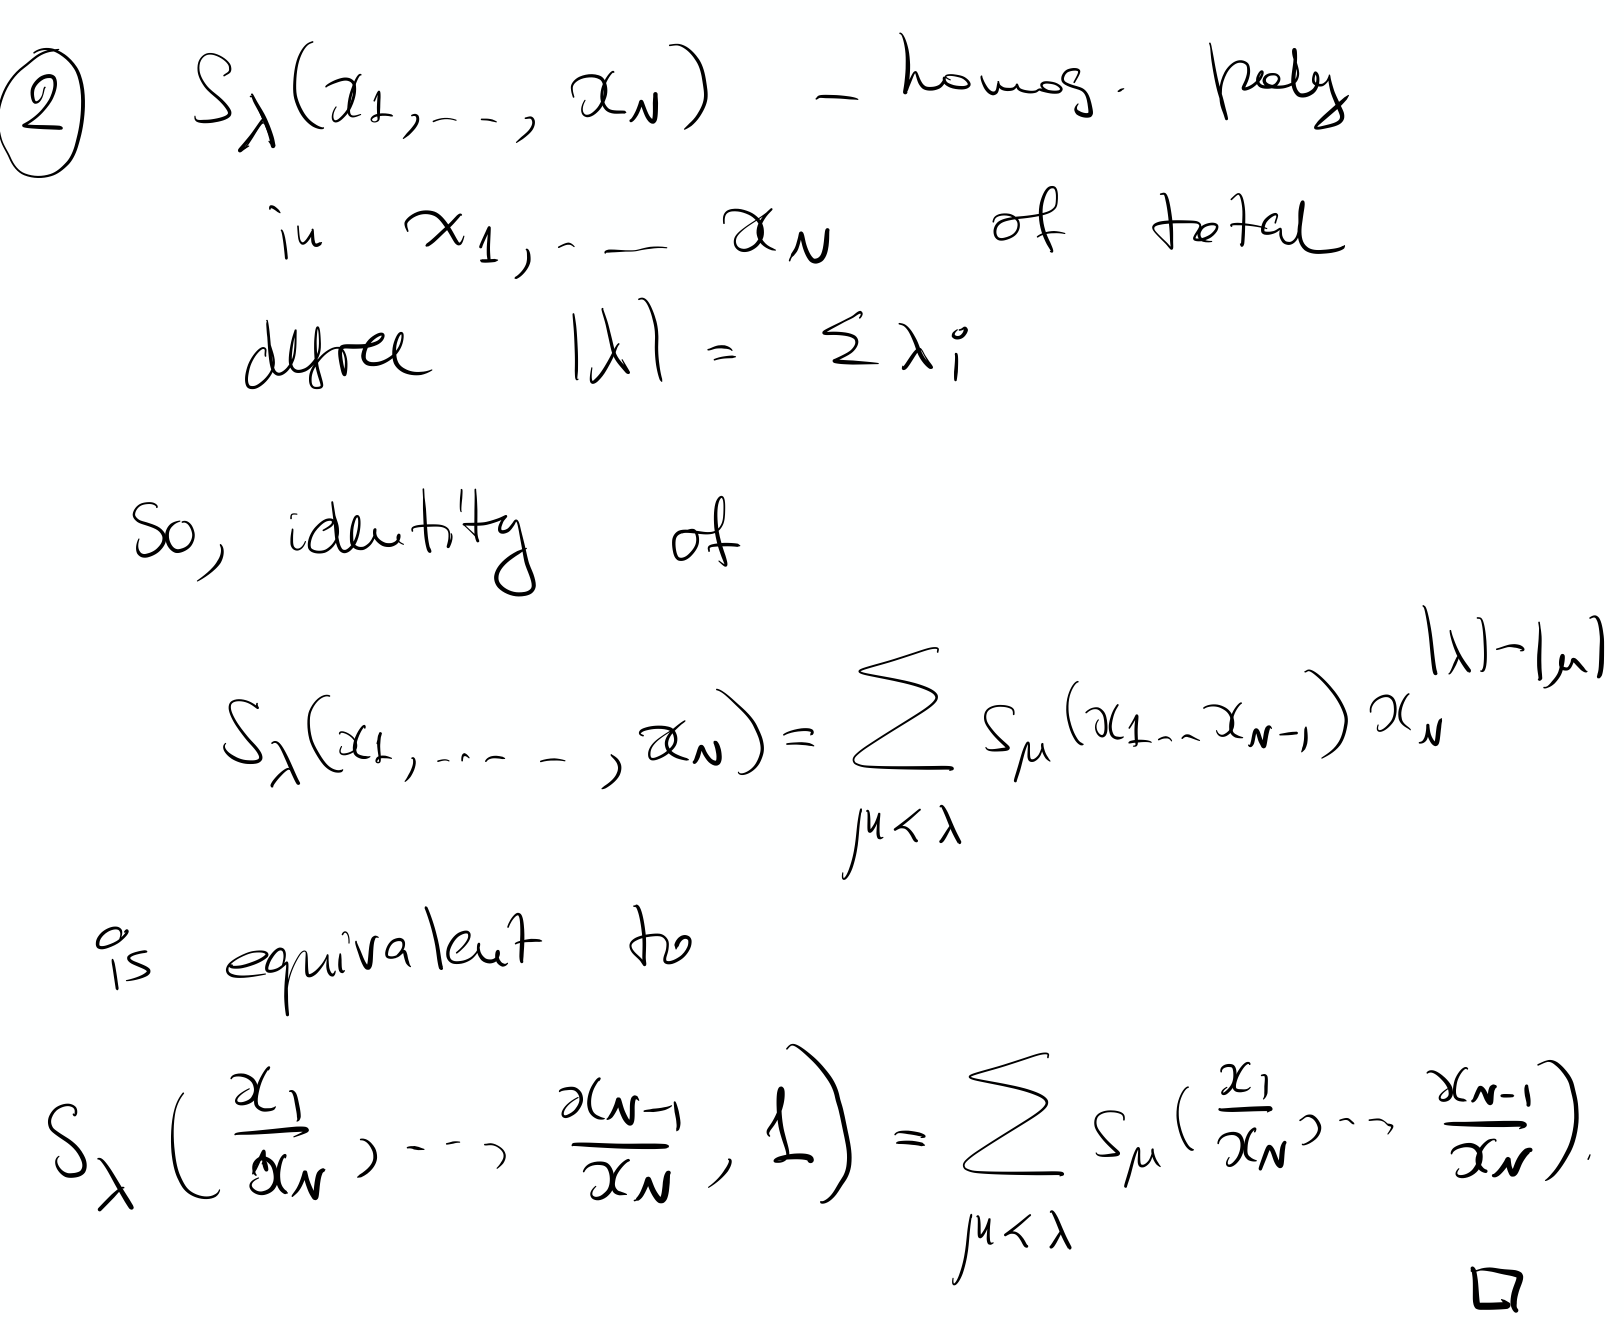 ② S_λ(x_1, ..., x_N) – homog. poly
in x_1, ... x_N of total
degree |λ| = Σ λ_i
So, identity of
S_λ(x_1, ..., x_N) = Σ_{μ≺λ} S_μ(x_1...x_{N-1}) x_N^{|λ|-|μ|}
is equivalent to
S_λ(x_1/x_N, ..., x_{N-1}/x_N, 1) = Σ_{μ≺λ} S_μ(x_1/x_N, ..., x_{N-1}/x_N).
□